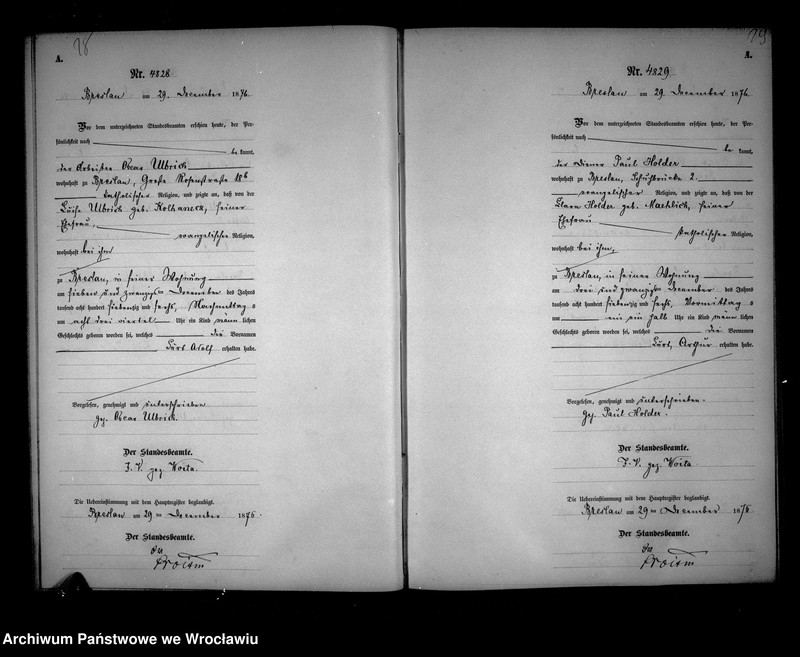 78
A.
Nr. 4828
Breslau am 29. December 1876
Vor dem unterzeichneten Standesbeamten erschien heute, der Per-
sönlichkeit nach
be kannt,
der Arbeiter Oscar Ulbrich
wohnhaft zu Breslau, Große Rosenstraße 18b
katholischer Religion, und zeigte an, daß von der
Ulbrich geb. seiner
Ehefrau,
evangelischer Religion,
wohnhaft bei ihm
zu Breslau, in seiner Wohnung
am sieben und zwanzigsten December des Jahres
tausend acht hundert siebenzig und sechs, Nachmittag s
um acht drei viertel Uhr ein Kind männ lichen
Geschlechts geboren worden sei, welches die Vornamen
Adolf erhalten habe.
Vorgelesen, genehmigt und unterschrieben
gez. Oscar Ulbrich.
Der Standesbeamte.
I. V. gez. Woita.
Die Uebereinstimmung mit dem Hauptregister beglaubigt.
Breslau am 29ten December 1876.
Der Standesbeamte.
79
A.
Nr. 4829
Breslau am 29 December 1876
Vor dem unterzeichneten Standesbeamten erschien heute, der Per-
sönlichkeit nach
be kannt,
der Diener Paul Holder
wohnhaft zu Breslau, Schuhbrücke 2.
evangelischer Religion, und zeigte an, daß von der
Clara Holder geb. seiner
Ehefrau
katholischer Religion,
wohnhaft bei ihm,
zu Breslau, in seiner Wohnung
am drei und zwanzigsten December des Jahres
tausend acht hundert siebenzig und sechs, Vormittag s
um ein halb Uhr ein Kind männ lichen
Geschlechts geboren worden sei, welches die Vornamen
erhalten habe.
Vorgelesen, genehmigt und unterschrieben.
gez. Paul Holder.
Der Standesbeamte.
I. V. gez. Woita
Die Uebereinstimmung mit dem Hauptregister beglaubigt.
Breslau am 29ten December 1876
Der Standesbeamte.
Archiwum Państwowe we Wrocławiu